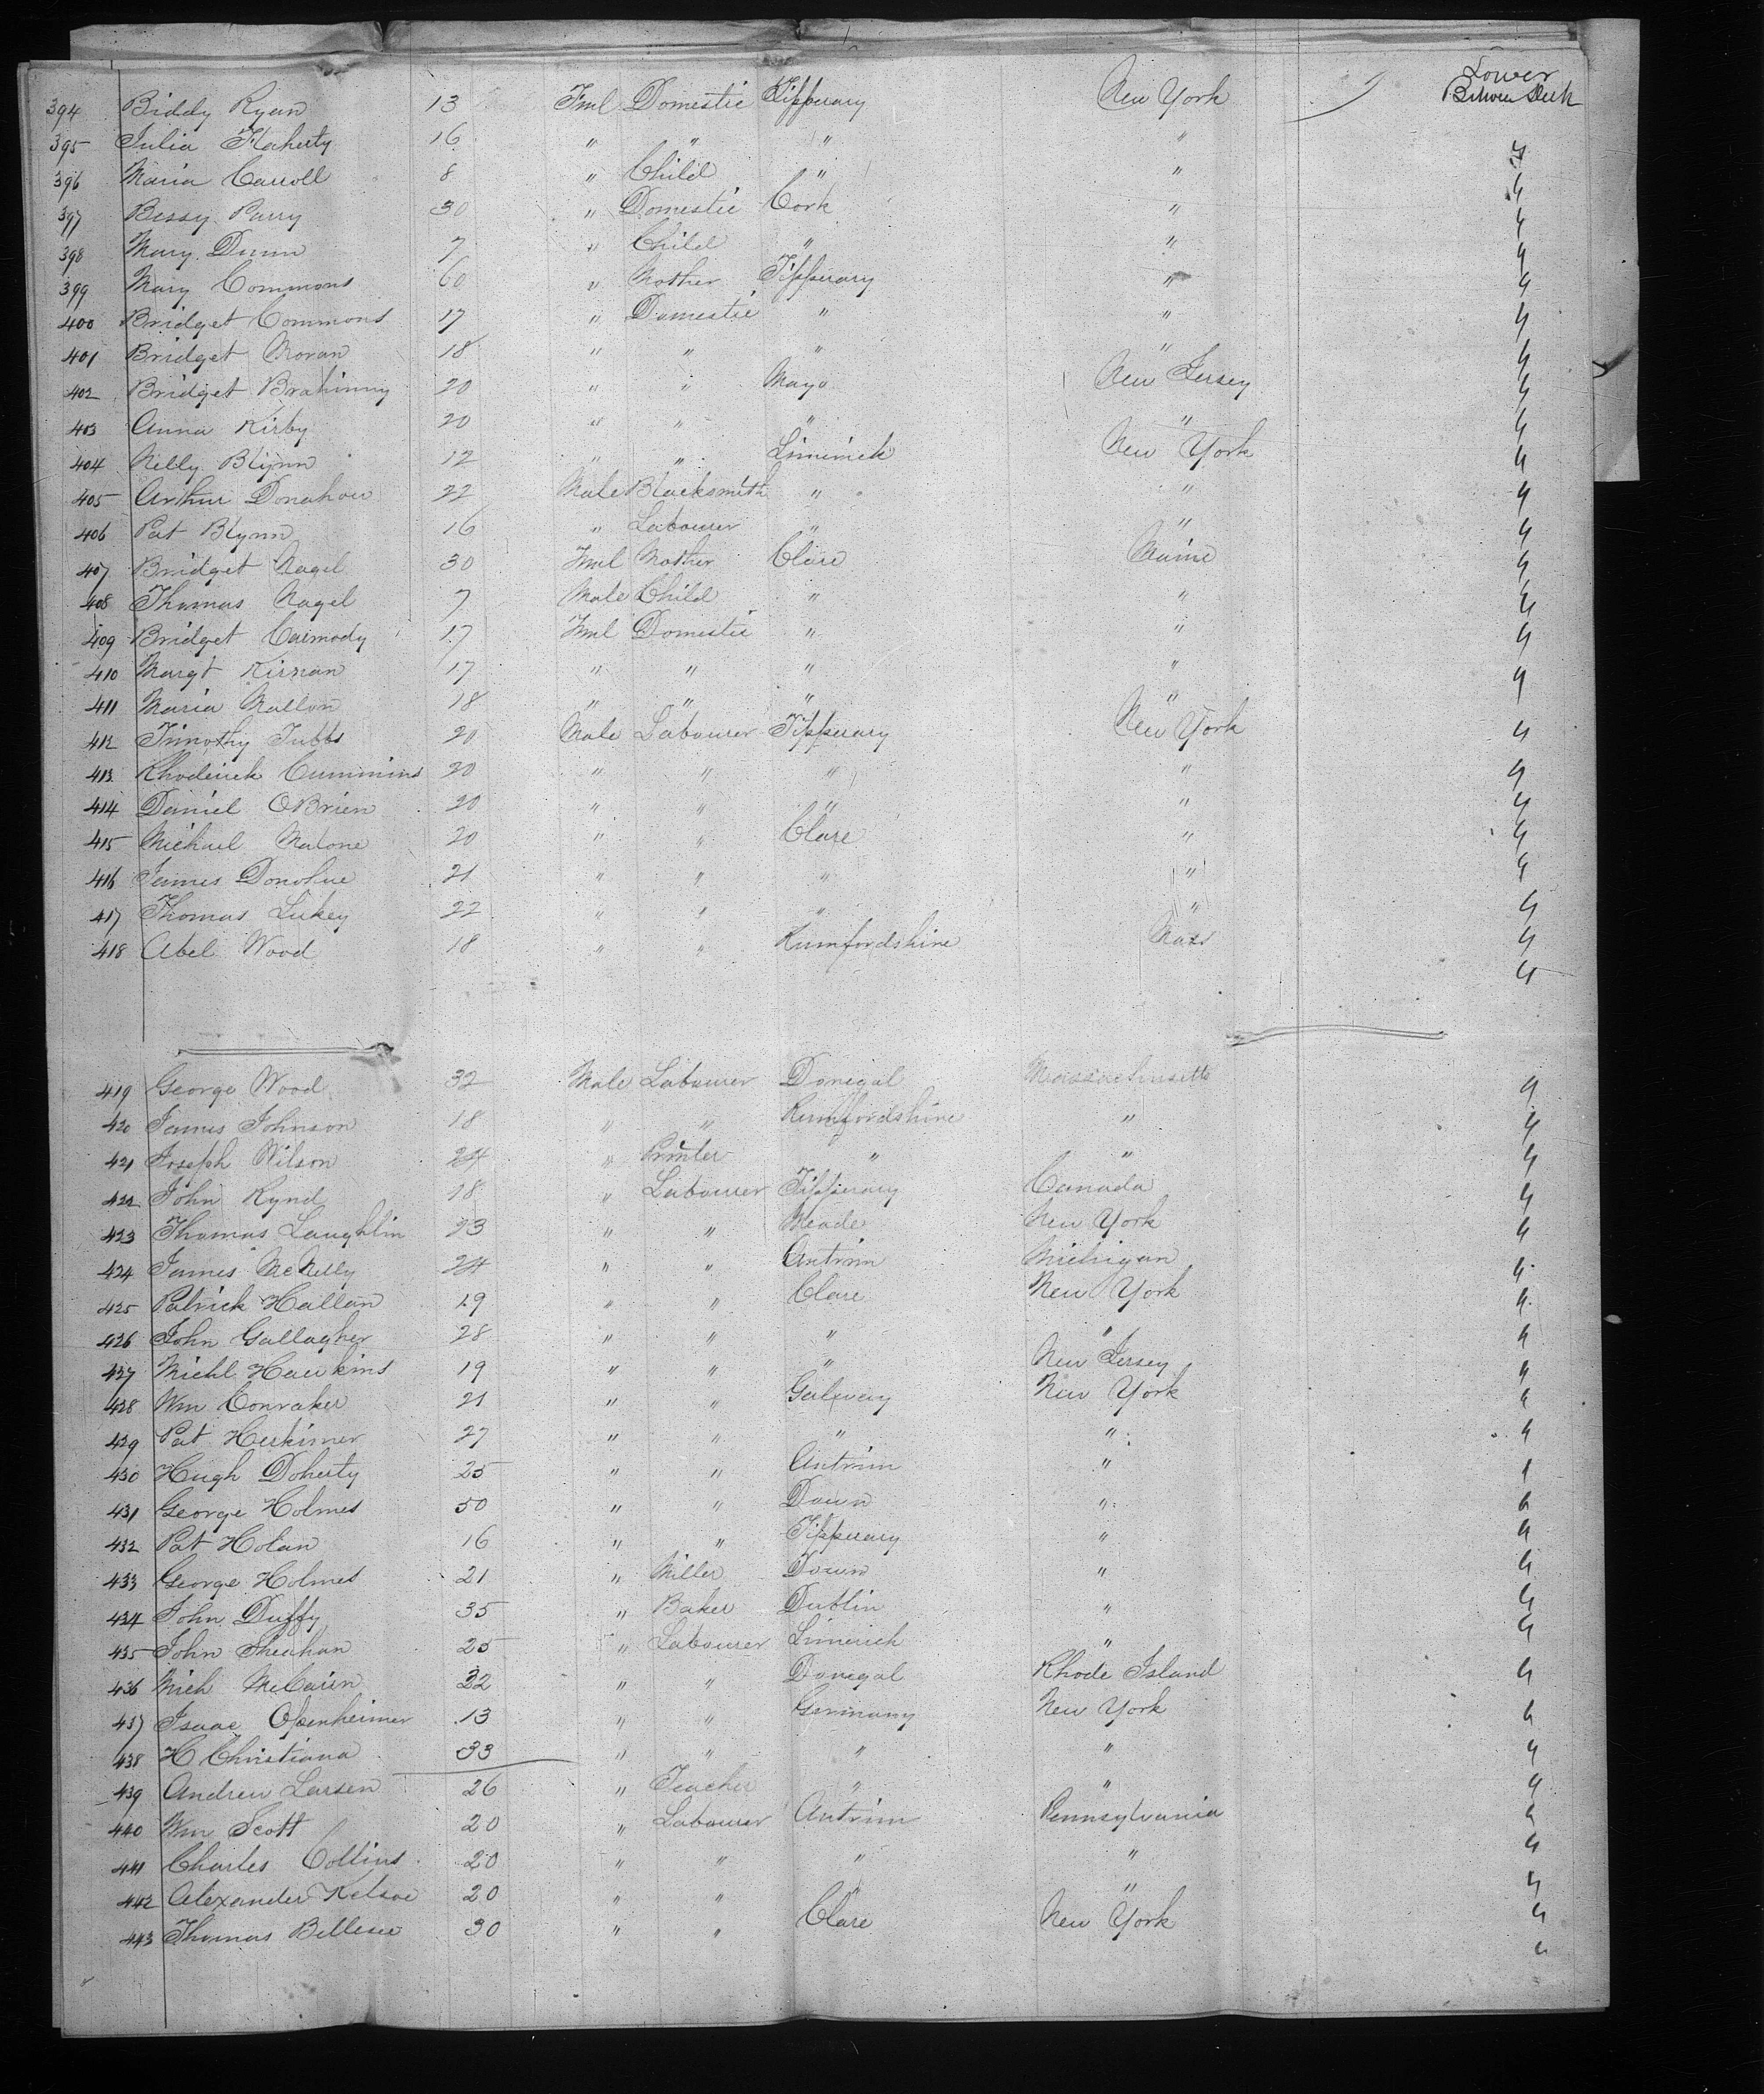 Lower
394 Biddy Ryan 13 Fml Domestic Tipperary New York Between Deck
395 Julia Flaherty 16 " " " " "
396 Maria Carroll 8 " Child " " "
397 Bessy Parry 30 " Domestic Cork " "
398 Mary Dunn 7 " Child " " "
399 Mary Commons 60 " Mother Tipperary " "
400 Bridget Commons 17 " Domestic " " "
401 Bridget Moran 18 " " " " "
402 Bridget Brahinny 20 " " Mayo New Jersey "
403 Anna Kirby 20 " " " " "
404 Nelly Blynn 12 " " Limerick New York "
405 Arthur Donahou 22 Male Blacksmith " " "
406 Pat Blynn 16 " Labourer " " "
407 Bridget Nagel 30 Fml Mother Clare Maine "
408 Thomas Nagel 7 Male Child " " "
409 Bridget Carmody 17 Fml Domestic " " "
410 Margt Kirnan 17 " " " " "
411 Maria Mallon 18 " " " " "
412 Timothy Tubbs 20 Male Labourer Tipperary New York "
413 Rhoderick Cummins 20 " " " " "
414 Daniel OBrien 20 " " " " "
415 Michael Malone 20 " " Clare " "
416 James Donohue 21 " " " " "
417 Thomas Lukey 22 " " " " "
418 Abel Wood 18 " " Rumfordshire Mass "
419 George Wood 32 Male Labourer Donegal Massachusetts "
420 James Johnson 18 " " Rumfordshire " "
421 Joseph Wilson 24 " Printer " " "
422 John Rynd 18 " Labourer Tipperary Canada "
423 Thomas Laughlin 23 " " Meade New York "
424 James McNelly 24 " " Antrim Michigan "
425 Patrick Hallan 19 " " Clare New York "
426 John Gallagher 28 " " " " "
427 Michl Hawkins 19 " " " New Jersey "
428 Wm Conraker 21 " " Galway New York "
429 Pat Herkimer 27 " " " " "
430 Hugh Doherty 25 " " Antrim " "
431 George Holmes 50 " " Down " "
432 Pat Holan 16 " " Tipperary " "
433 George Holmes 21 " Miller Down " "
434 John Duffy 35 " Baker Dublin " "
435 John Sheahan 25 " Labourer Limerick " "
436 Mich McCairn 32 " " Donegal Rhode Island "
437 Isaac Openheimer 13 " " Germany New York "
438 H Christiana 33 " " " " "
439 Andrew Larsen 26 " Teacher " " "
440 Wm Scott 20 " Labourer Antrim Pennsylvania "
441 Charles Collins 20 " " " " "
442 Alexander Kelsoe 20 " " " " "
443 Thomas Bellew 30 " " Clare New York "